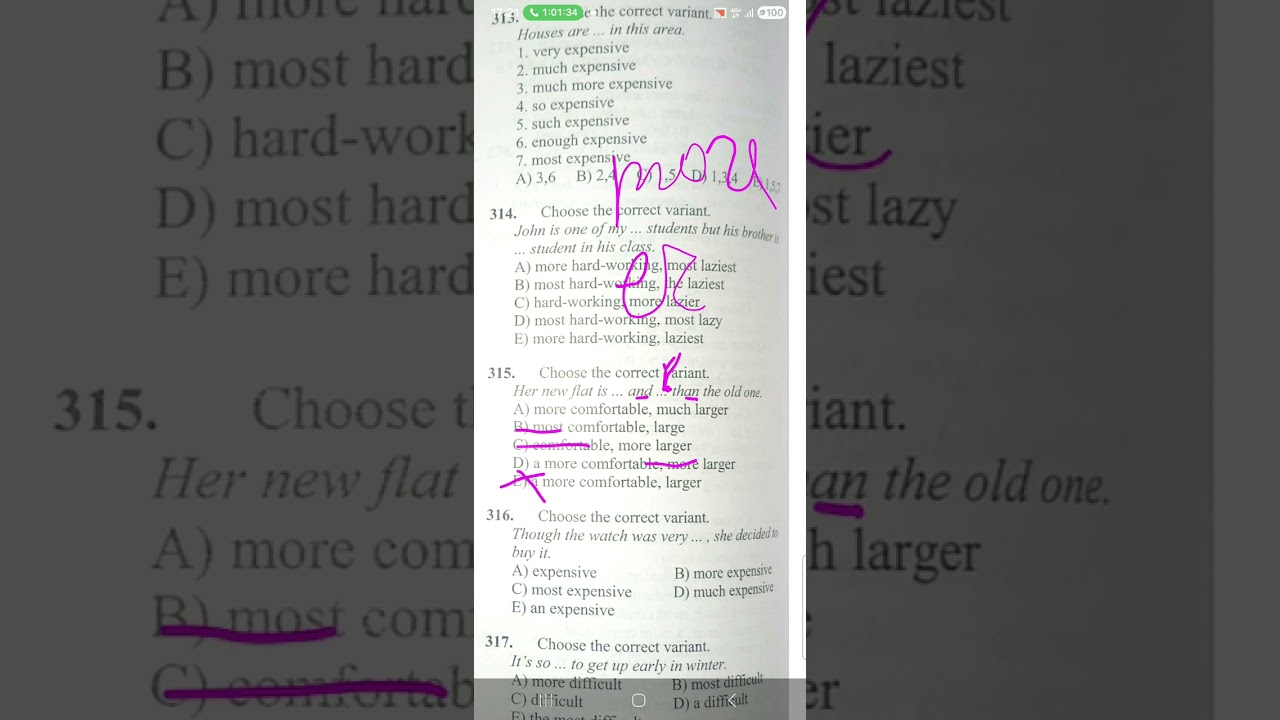 1:01:34
100
313. the correct variant.
Houses are ... in this area.
1. very expensive
2. much expensive
3. much more expensive
4. so expensive
5. such expensive
6. enough expensive
7. most expensive
A) 3,6 B) 2,4 D) 1,3,4
more
er
314. Choose the correct variant.
John is one of my ... students but his brother is
... student in his class.
A) more hard-working, most laziest
B) most hard-working, the laziest
C) hard-working, more lazier
D) most hard-working, most lazy
E) more hard-working, laziest
315. Choose the correct variant.
Her new flat is ... and ... than the old one.
A) more comfortable, much larger
B) most comfortable, large
C) comfortable, more larger
D) a more comfortable, more larger
E) a more comfortable, larger
316. Choose the correct variant.
Though the watch was very ... , she decided to
buy it.
A) expensive B) more expensive
C) most expensive D) much expensive
E) an expensive
317. Choose the correct variant.
It's so ... to get up early in winter.
A) more difficult B) most difficult
C) difficult D) a difficult
E) the most